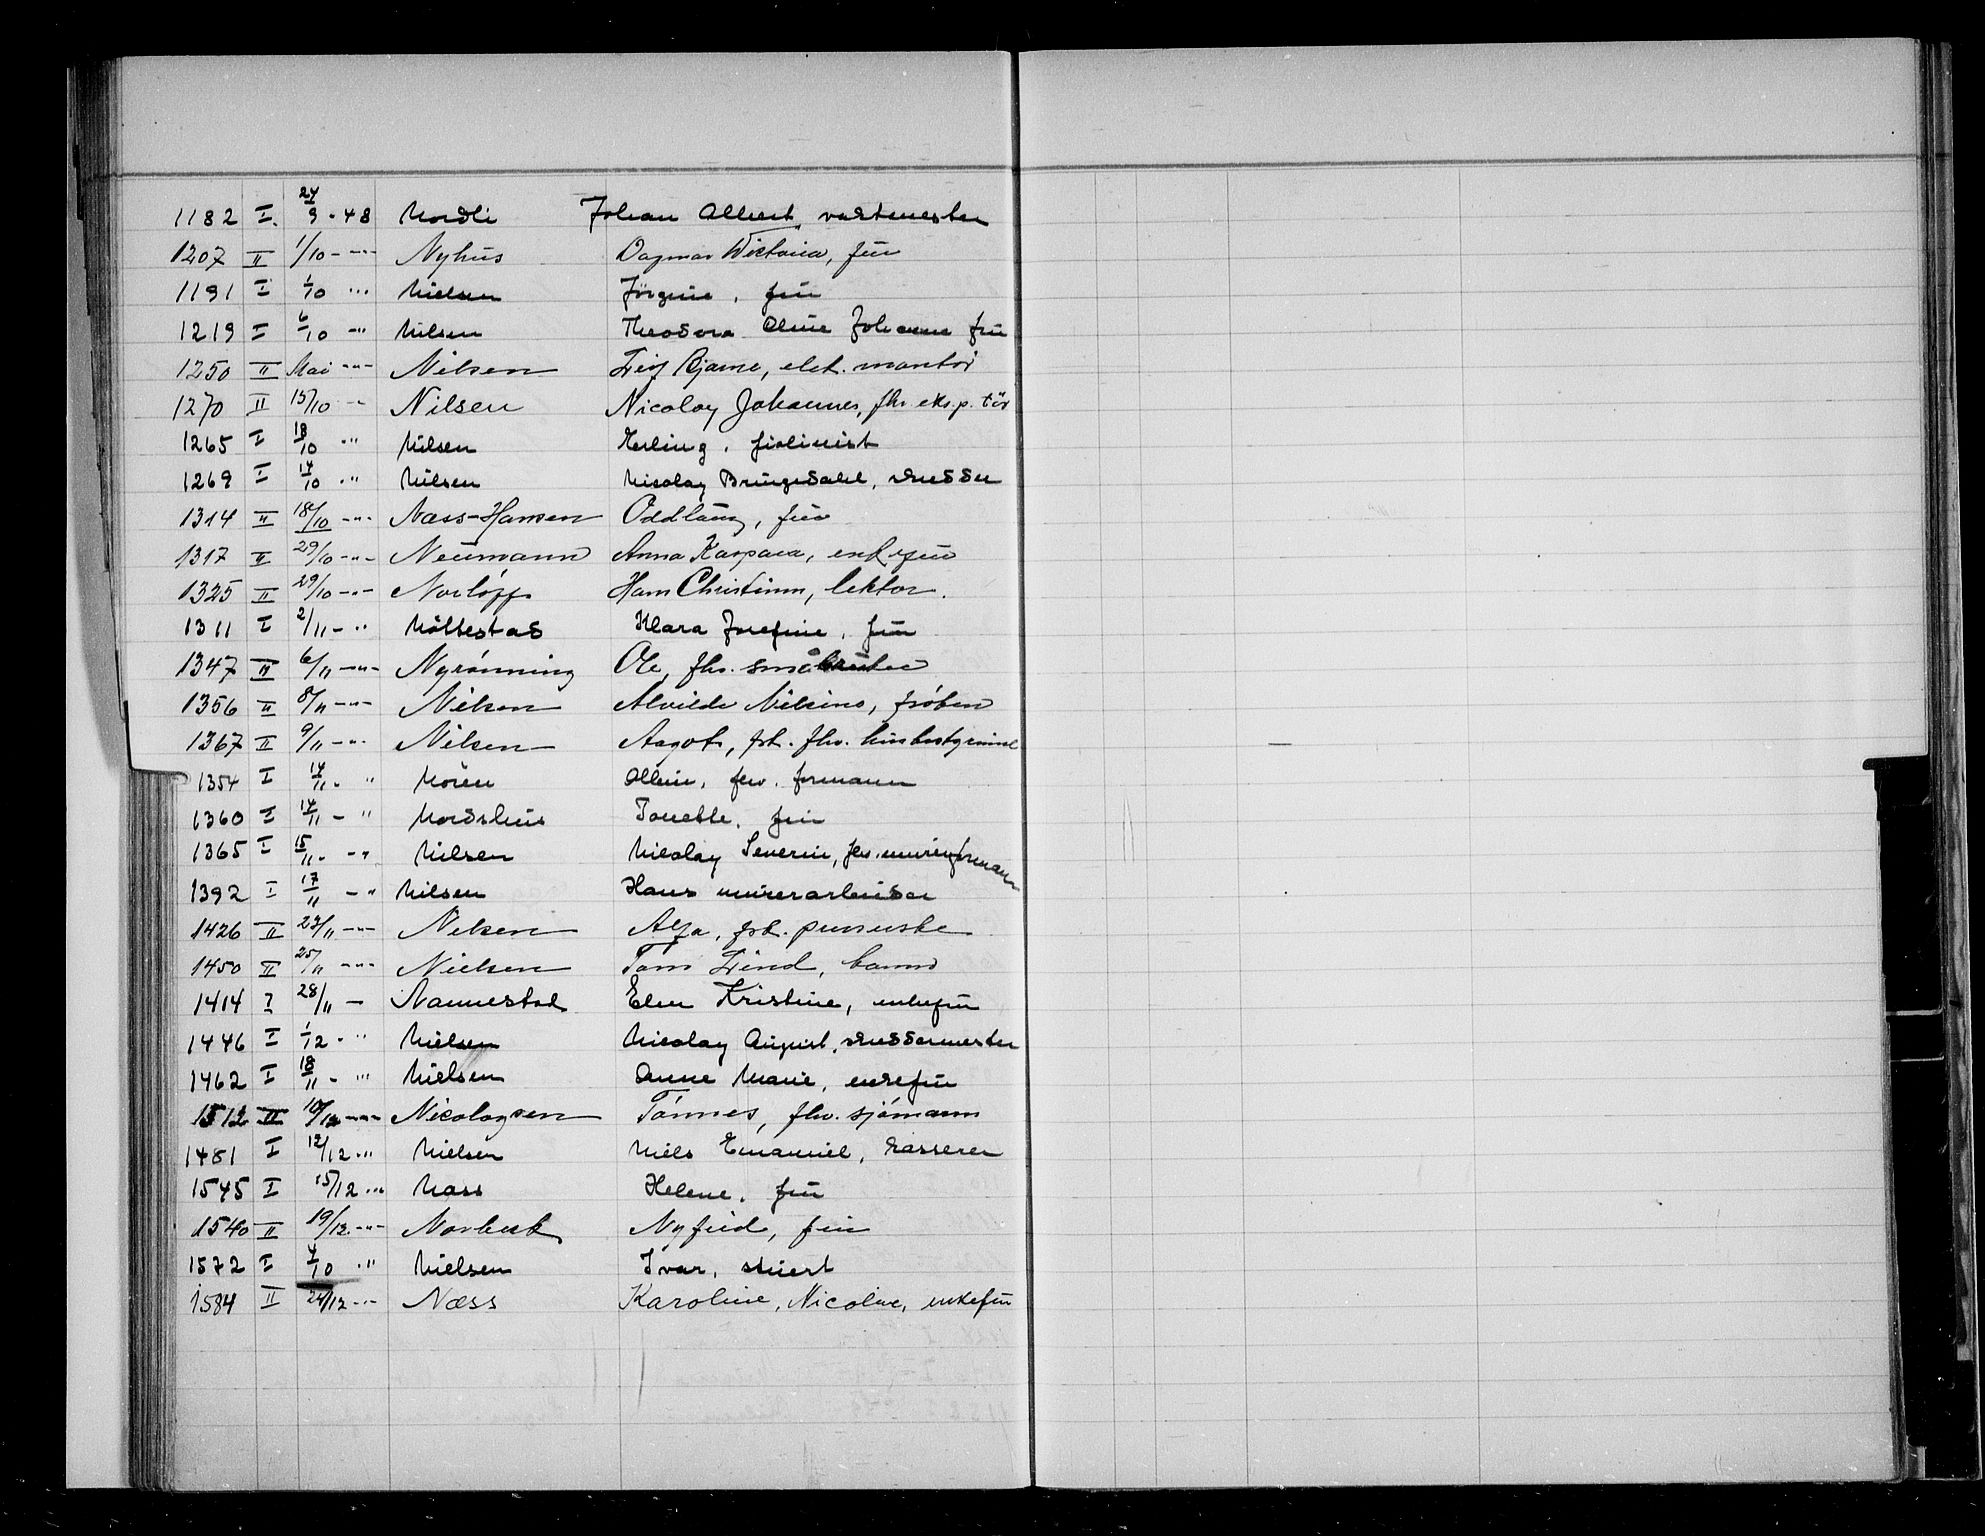 1182 I. 24/9 - 48 Nordli Johan Albert vaktmester
1207 II 1/10 - -"- Nyhus Dagmar Victoria, frü
1191 I 1/10 -"- Nielsen Jörgine, frü
1219 I 6/10 -"- Nilsen Theodora Oline Johanne frü
1250 II Mai -"- Nilsen Leif Bjarne, elek. montör
1270 II 15/10 -"- Nilsen Nicolay Johannes, fhv. eksp. tör
1265 I 18/10 -"- Nilsen Erling, fiolinist
1269 I 14/10 -"- Nilsen Nicolay Brüngsdahl, snedker
1314 II 18/10 -"- Næss-Hansen Oddlaug, frü
1317 II 29/10 -"- Neümann Anna Kaspara, enkefrü
1325 II 29/10 -"- Norløff Hans Christian, lektor.
1311 I 2/11 - " Nöttestad Klara Josefine, frü
1347 II 6/11 -"- Nyrønning Ole, fhv. småbrüker
1356 II 8/11 -"- Nilsen Alvilde Nilsine, frøken
1367 II 9/11 -"- Nilsen Aagot, frk. fhv. hüsbestyrerinne
1354 I 14/11 - " Noren Albin, fhv. formann
1360 I 14/11 - " Nordshüs Tonette, frü
1365 I 15/11 - -" Nilsen Nicolay Severin, fhv. mürerformann
1392 I 17/11 - " Nilsen Hans mürerarbeider
1426 II 23/11 -"- Nilsen Alfa, frk.
1450 II 25/11 -"- Nielsen Tom Lind, barn
1414 ? 28/11 - Nannestad Elen Kristine, enkefrü
1446 I 1/12 - " Nielsen Nicolay Aügüst, snedkermester
1462 I 18/11 - " Nielsen Anne Marie, enkefrü
1512 II 10/12 -"- Nicolaysen Tønnes, fhv. sjømann
1481 I 12/12 -" Nielsen Niels Emanüel, kasserer
1545 I 15/12 -" Næss Helene, frü
1540 II 19/12 -"- Norbeck frü
1572 I 4/10 -" Nielsen Ivar, stüert
1584 II 24/12 -"- Næss Karoline, Nicoline, enkefrü